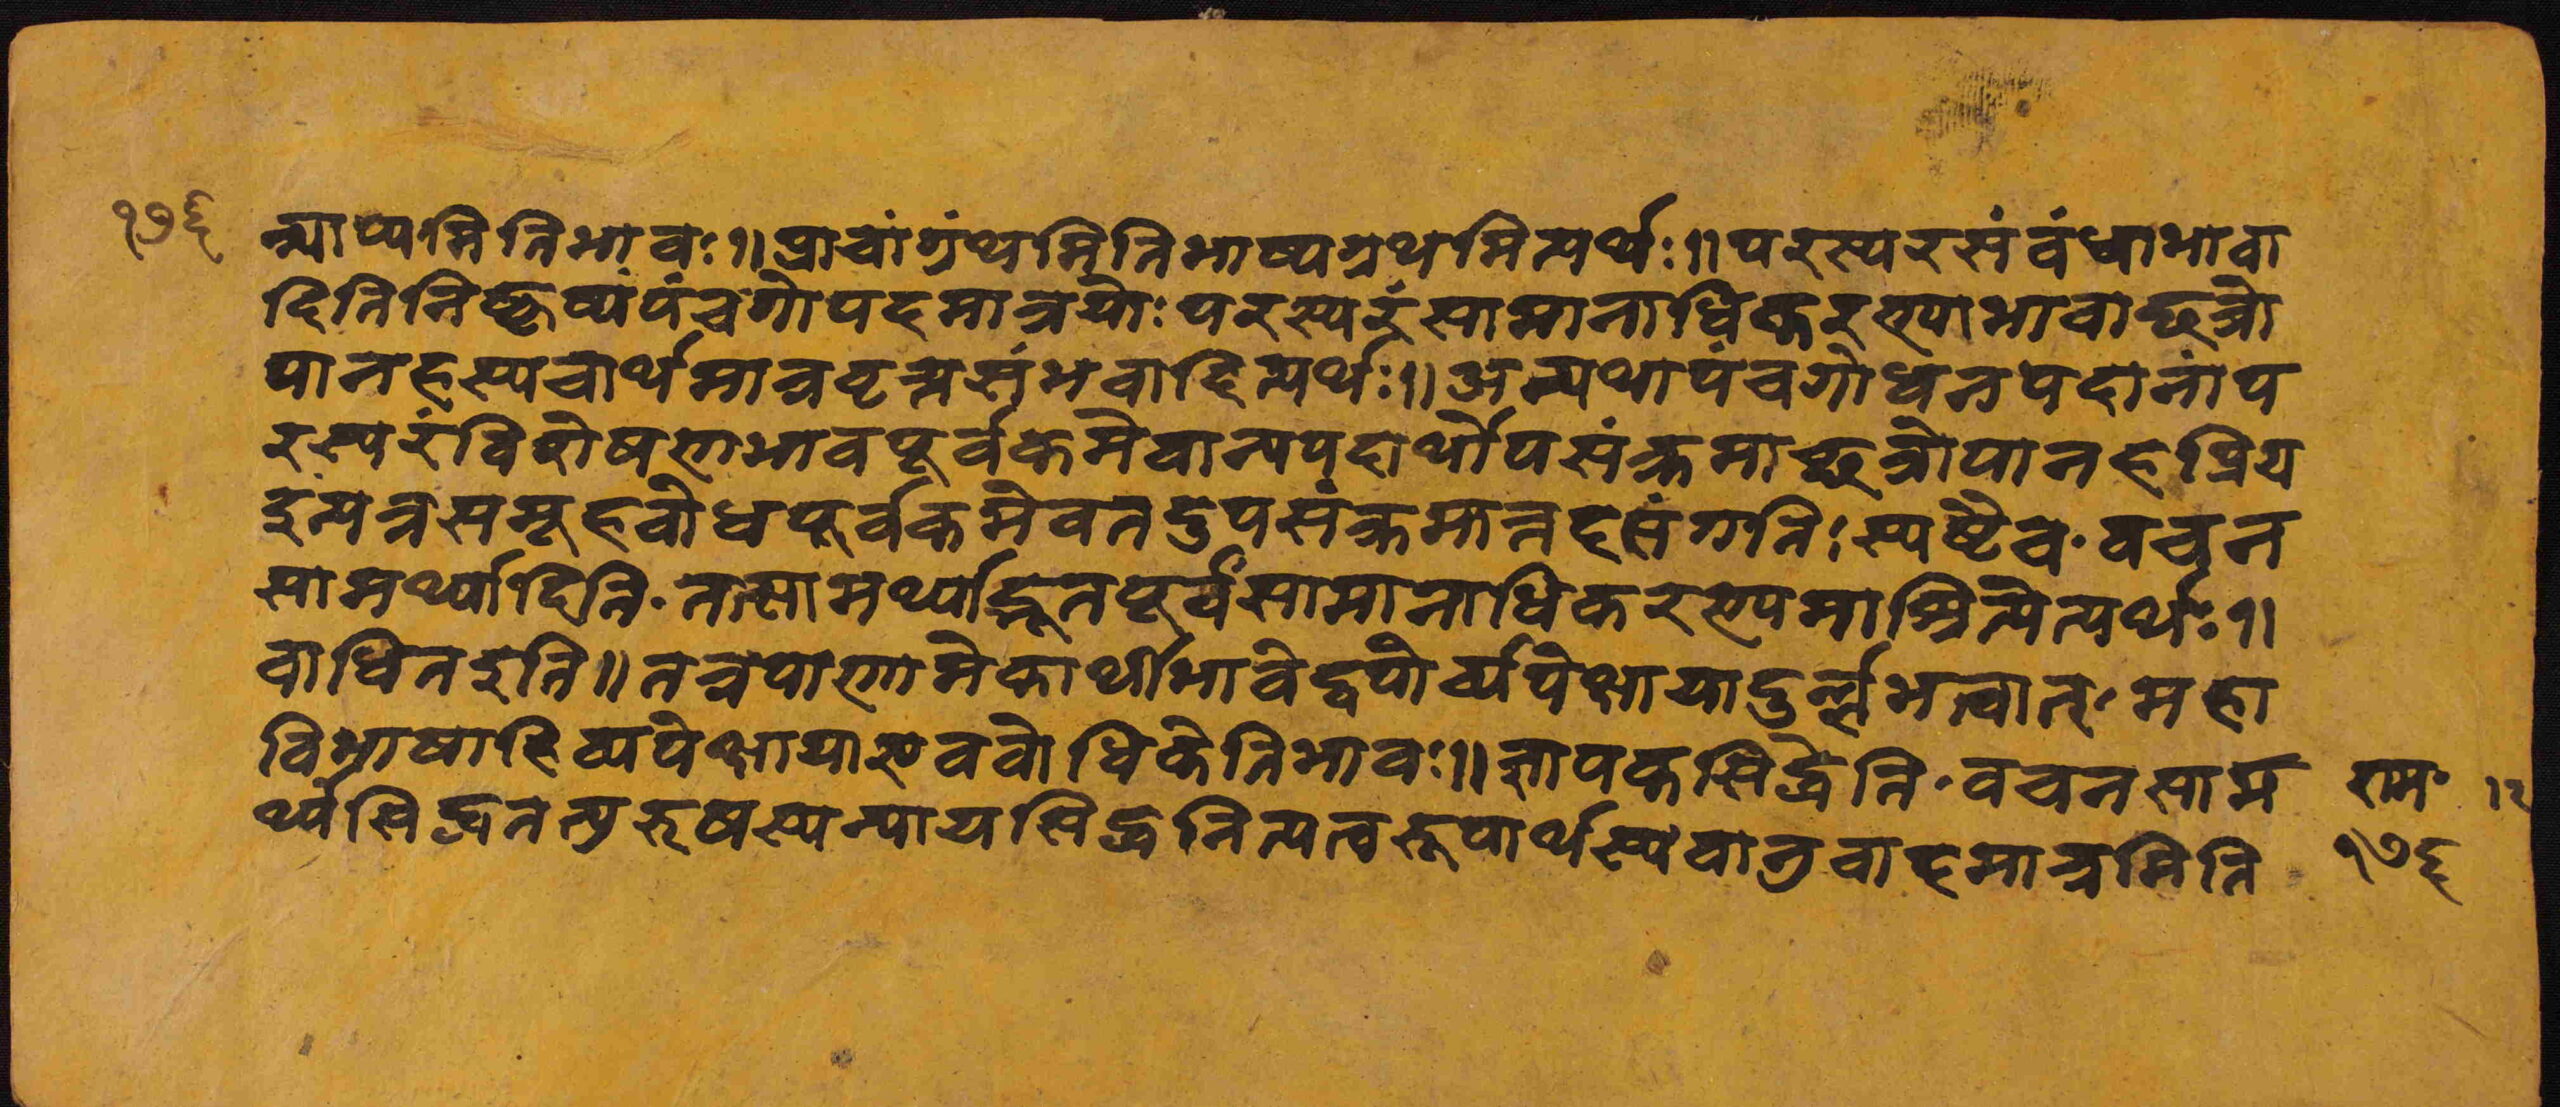 १७६
न्माप्यमितिभावः॥प्राचांग्रंथमितिभाष्यग्रथमित्यर्थः॥परस्परसंवंधाभावा
दितिनिष्कृष्यपंचगोपदमात्रयोःपरस्परंसामानाधिकरण्याभावाछत्रो
पानहस्यचार्थमात्रवृत्तसंभवादित्यर्थः॥अन्यथापंचगोधनपदानांप
रस्परंविशेषणभावपूर्वकमेवान्यपदार्थोपसंक्रमाछत्रोपानहप्रिय
इत्यत्रसमूहवोधपूर्वकमेवतदुपसंक्रमान्नदसंगतिःस्पष्टैव॰वचन
सामर्थ्यादिति॰तत्सामर्थ्याद्भूतपूर्वसामानाधिकरण्यमाश्रित्येत्यर्थः॥
वाधितइति॥तत्रपाणामेकार्थीभावेद्वयोर्व्यपेक्षायादुर्ल्लभत्वात्॰महा
विभाषाहिव्यपेक्षायाएववोधिकेतिभावः॥ज्ञापकसिद्धेति॰वचनसाम
र्थ्यसिद्धतत्पुरुषस्यन्यायसिद्धनित्यत्वरूपार्थस्यवानुवादमात्रमिति
राम॰
१७६